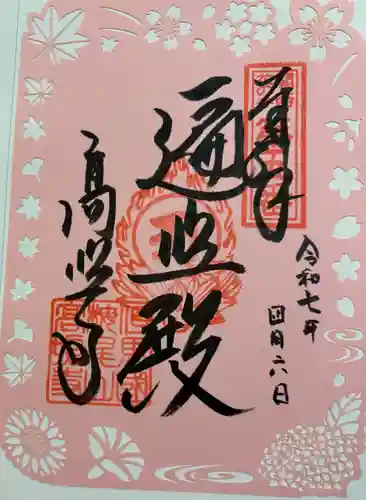 奉拝
令和七年
四月六日
遍照殿
高照寺